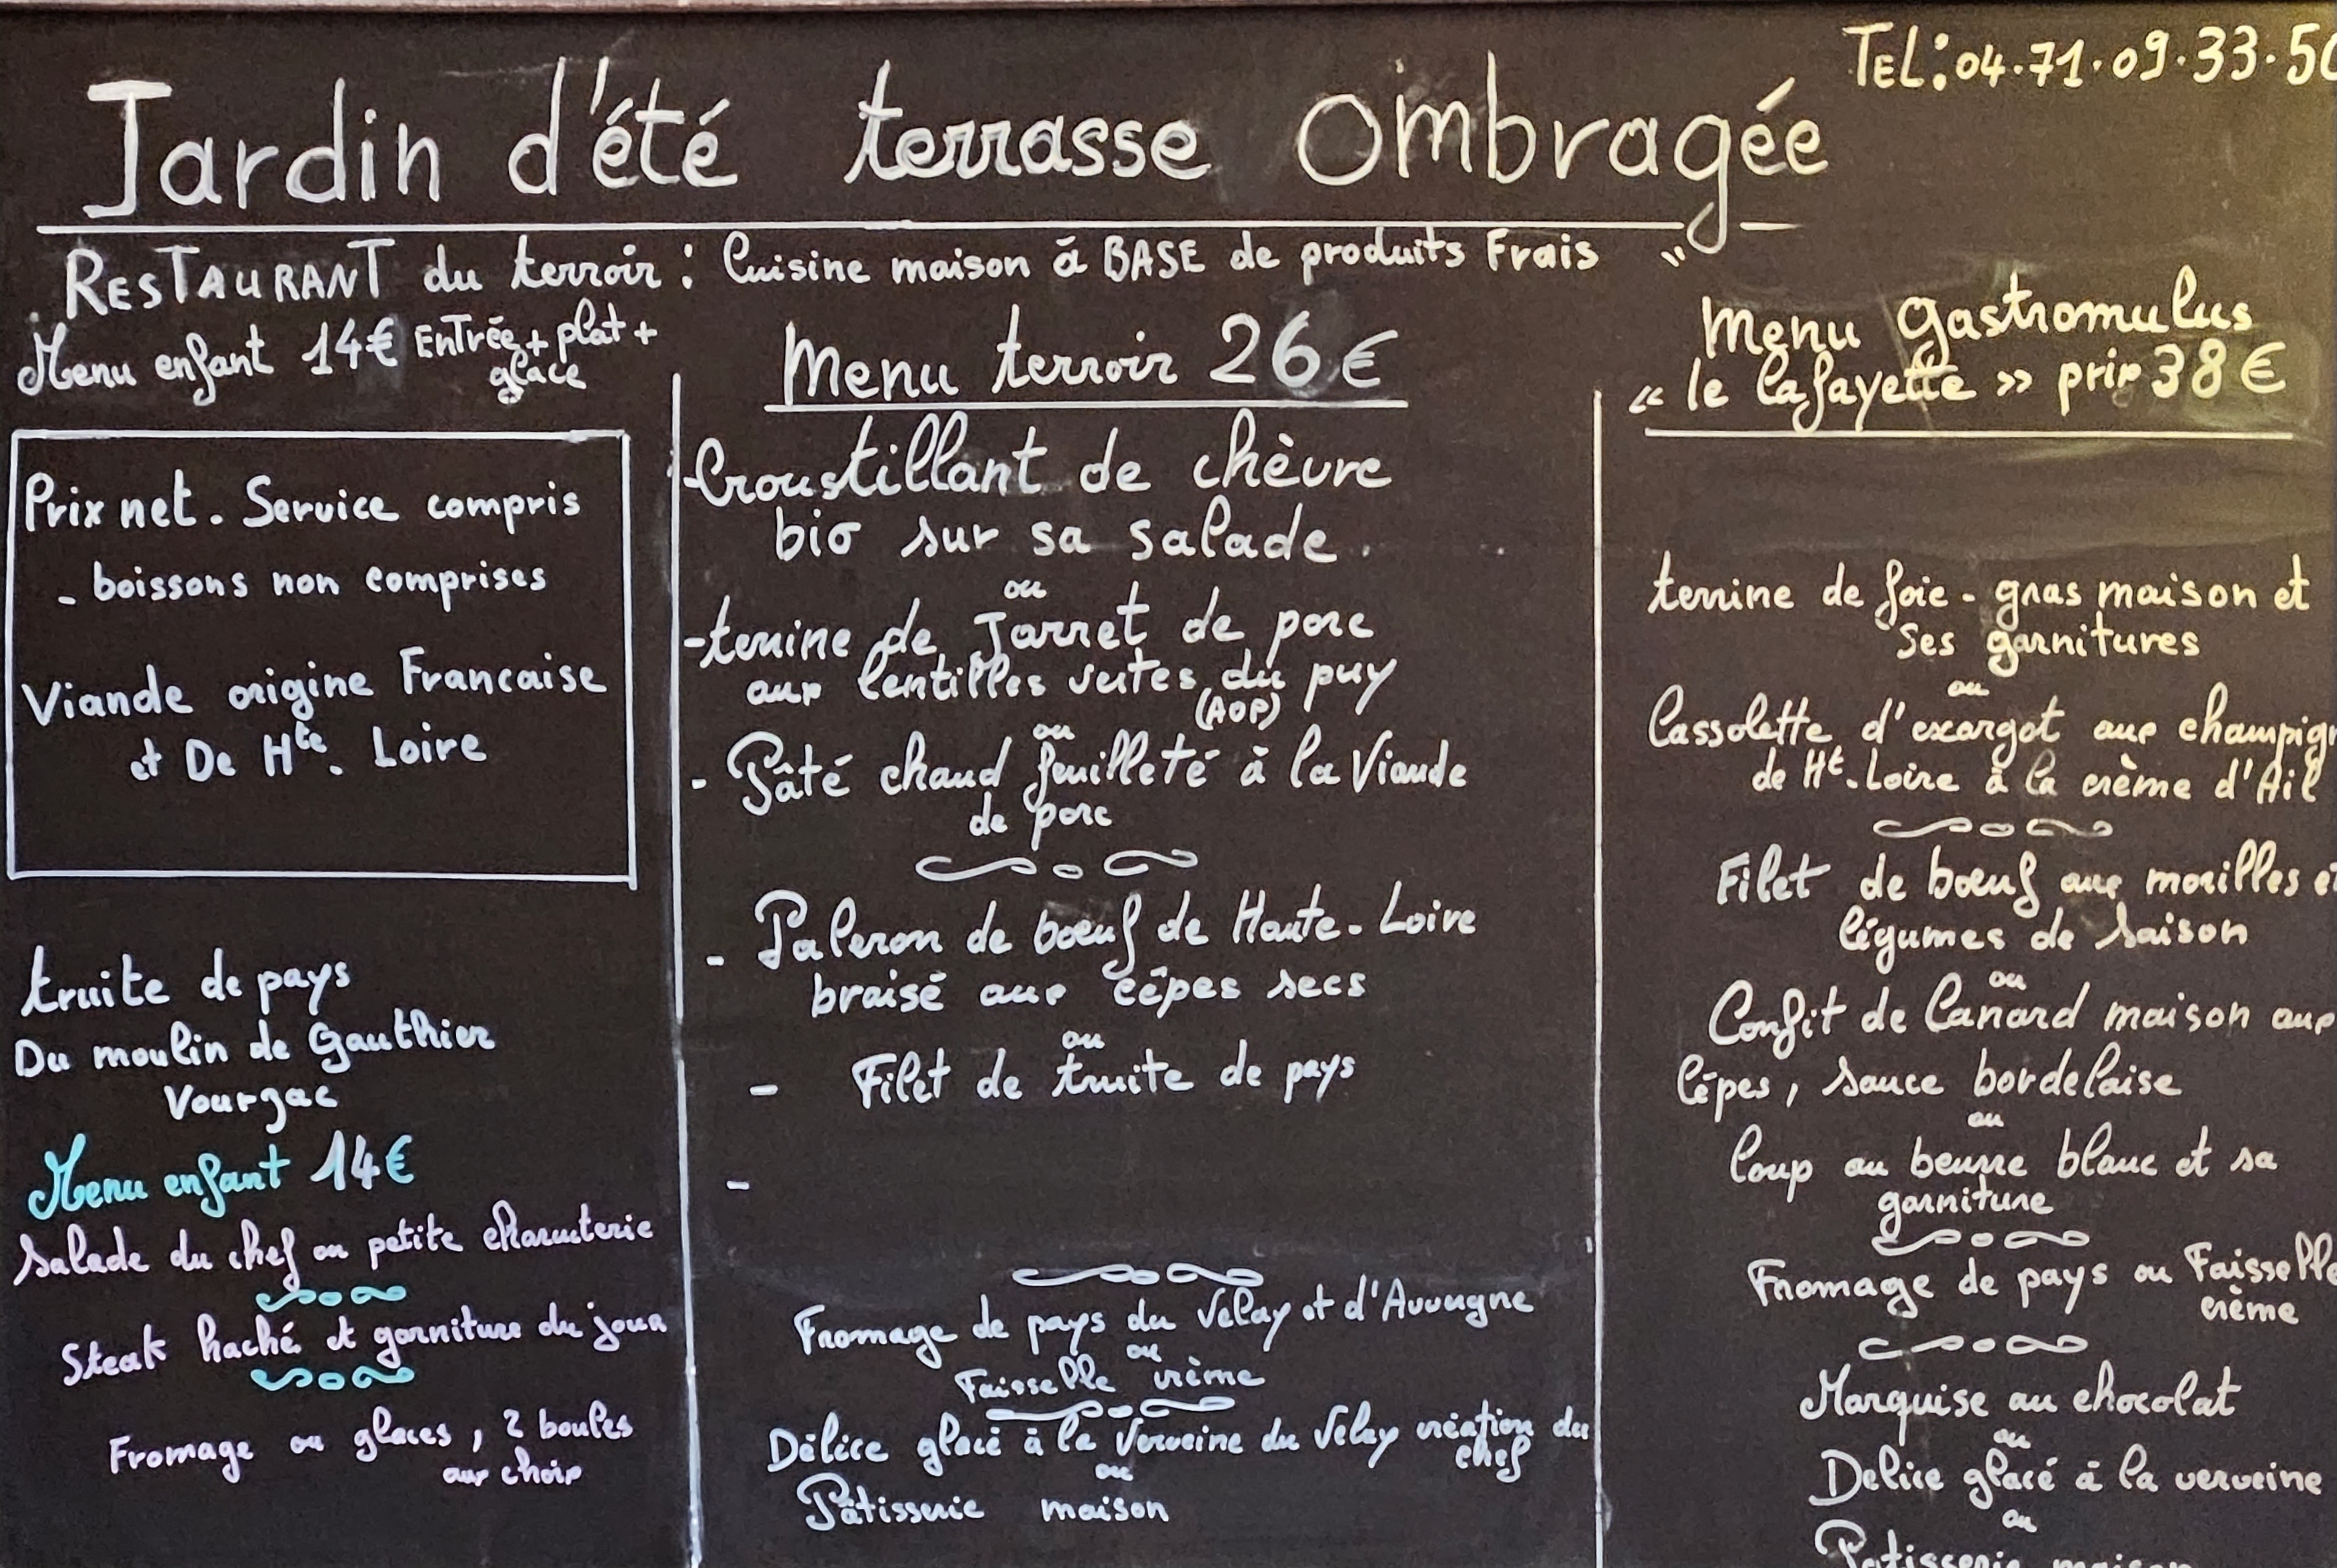 TEL: 04.71.09.33.50
Jardin d'été terrasse Ombragée
RESTAURANT du terroir : Cuisine maison à BASE de produits Frais
Menu enfant 14€ Entrée + plat +
glace
Prix net. Service compris
- boissons non comprises
Viande origine Francaise
et De Hte. Loire
truite de pays
Du moulin de Gauthier
Vourzac
Menu enfant 14€
Salade du chef ou petite charcuterie
Steak haché et garniture du jour
Fromage ou glaces, 2 boules
aux choix
Menu terroir 26€
- Croustillant de chèvre
bio sur sa salade.
ou
- terrine de Jarret de porc
aux lentilles vertes du puy
(AOP)
ou
- Pâté chaud feuilleté à la Viande
de porc
- Paleron de bœuf de Haute-Loire
braisé aux cêpes secs
ou
- Filet de truite de pays
-
Fromage de pays du Velay et d'Auvergne
ou
Faisselle crème
Délice glacé à la Verveine du Velay création du
chef
ou
Pâtisserie maison
Menu Gastromulus
« le Lafayette » prix 38€
terrine de foie-gras maison et
Ses garnitures
ou
Cassolette d'exargot aux champign
de Ht.Loire à la crème d'Ail
Filet de bœuf aux morilles et
légumes de saison
ou
Confit de Canard maison aux
Cêpes, sauce bordelaise
ou
Loup au beurre blanc et sa
garniture
Fromage de pays ou Faisselle
crème
Marquise au chocolat
ou
Delice glacé à la verveine
ou
Patisserie maison